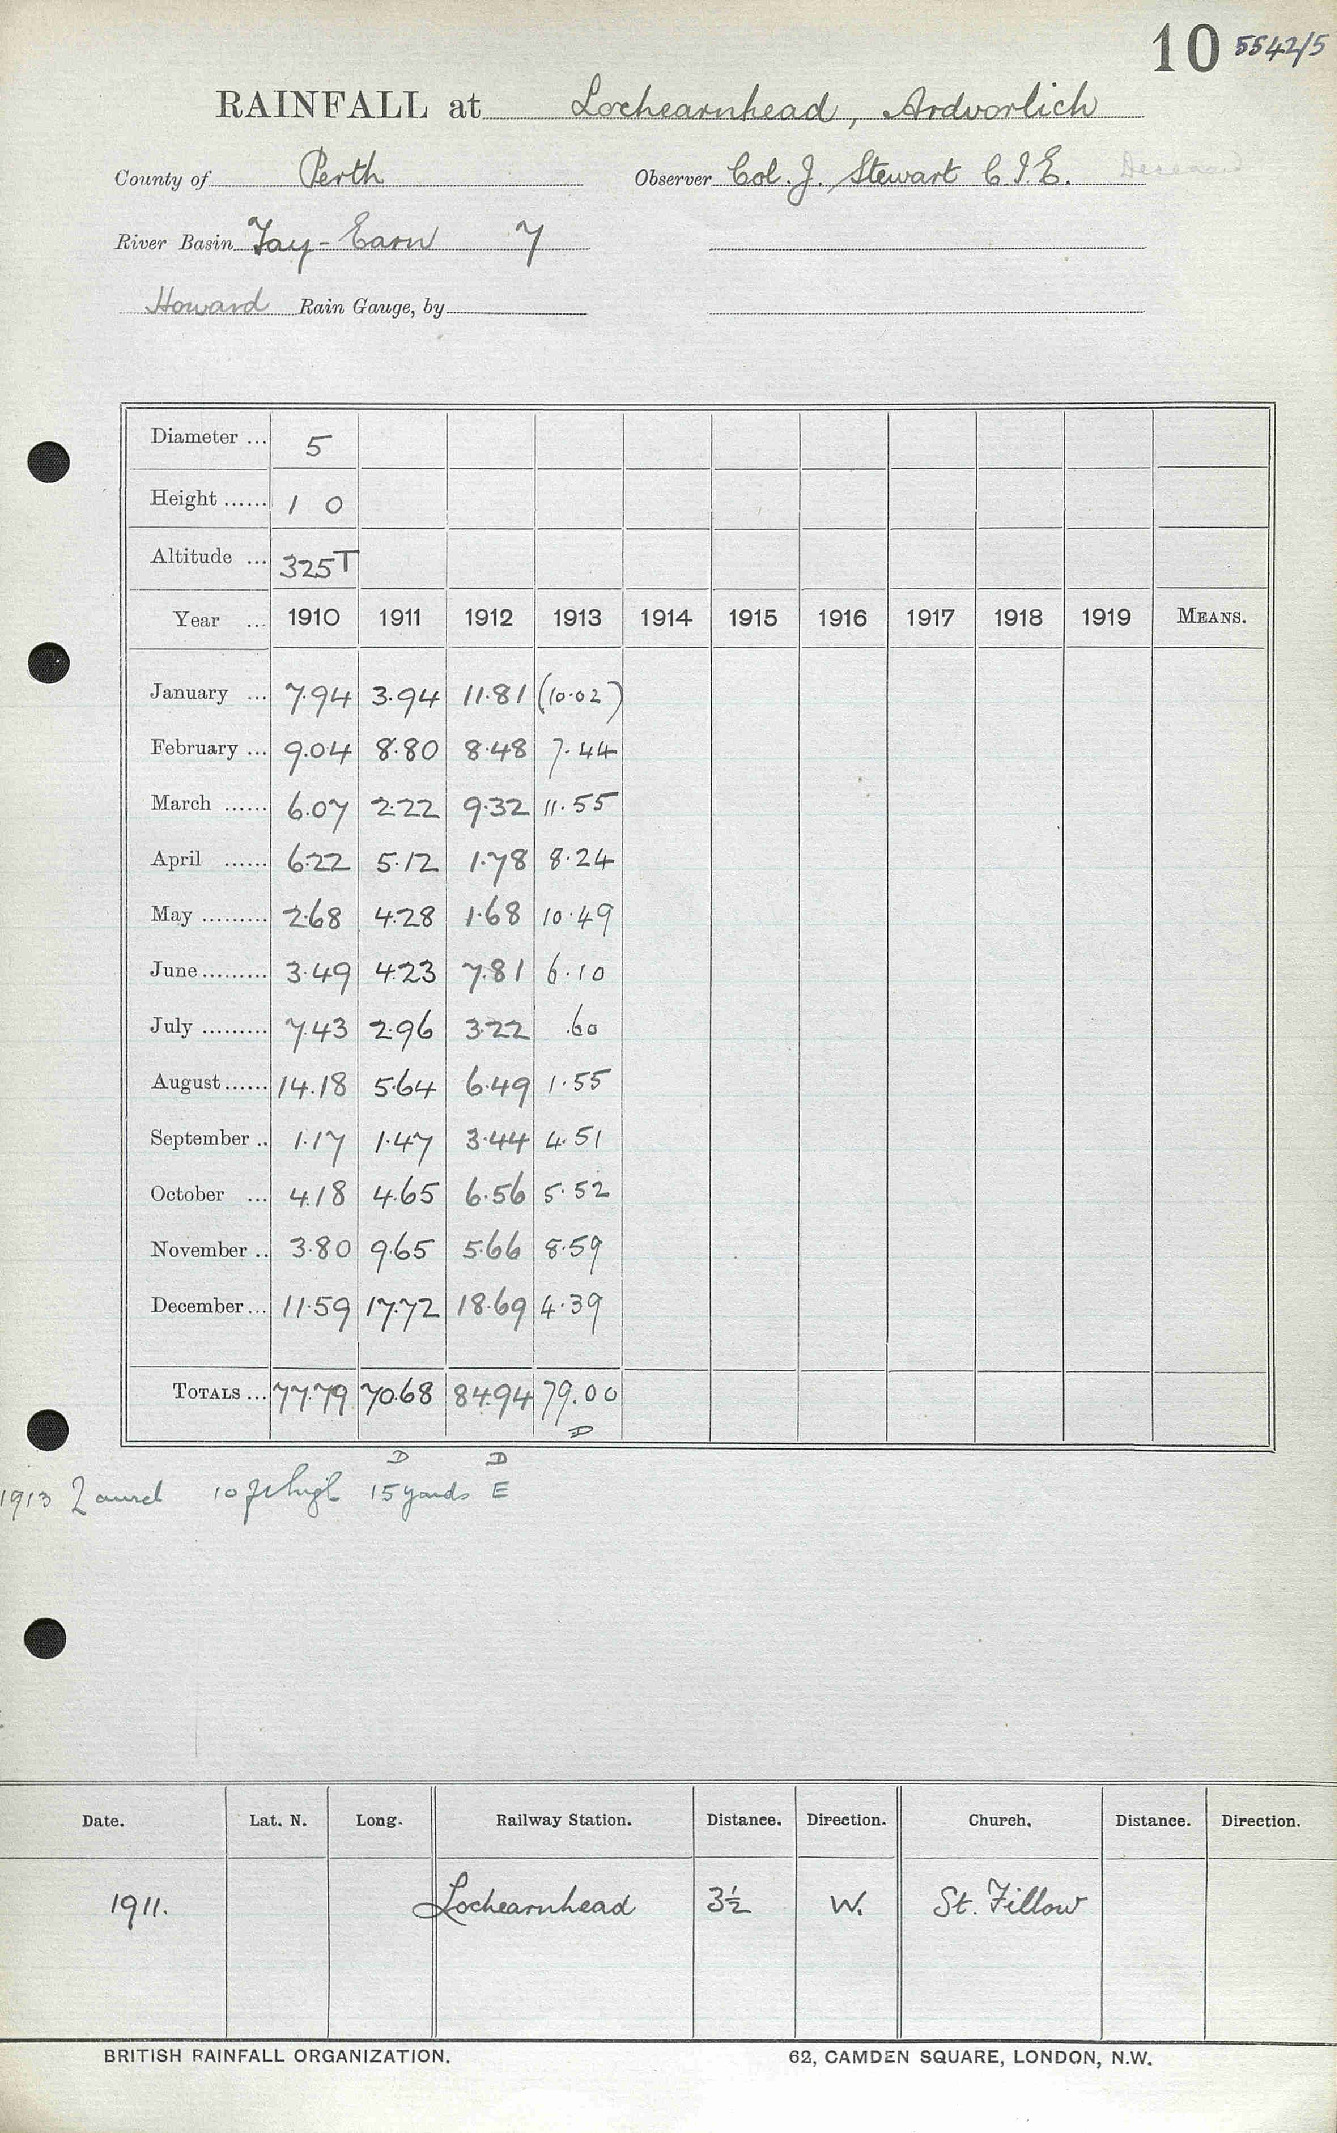 10 5542/5
RAINFALL at Lochearnhead, Ardvorlich
County of Perth Observer Col. J. Stewart C.I.E. Deceased
River Basin Tay - Earn 7
Howard Rain Gauge, by
Diameter ... 5
Height ...... 1 0
Altitude ... 325T
Year ... 1910 1911 1912 1913 1914 1915 1916 1917 1918 1919 MEANS.
January ... 7.94 3.94 11.81 (10.02)
February ... 9.04 8.80 8.48 7.44
March ...... 6.07 2.22 9.32 11.55
April ...... 6.22 5.12 1.78 8.24
May ......... 2.68 4.28 1.68 10.49
June ......... 3.49 4.23 7.81 6.10
July ......... 7.43 2.96 3.22 .60
August ...... 14.18 5.64 6.49 1.55
September .. 1.17 1.47 3.44 4.51
October ... 4.18 4.65 6.56 5.52
November .. 3.80 9.65 5.66 8.59
December ... 11.59 17.72 18.69 4.39
TOTALS ... 77.79 70.68 84.94 79.00
D
D D
1913 Laurel 10 ft high 15 yards E
Date. Lat. N. Long. Railway Station. Distance. Direction. Church. Distance. Direction.
1911. Lochearnhead 3½ W. St. Fillow
BRITISH RAINFALL ORGANIZATION. 62, CAMDEN SQUARE, LONDON, N.W.